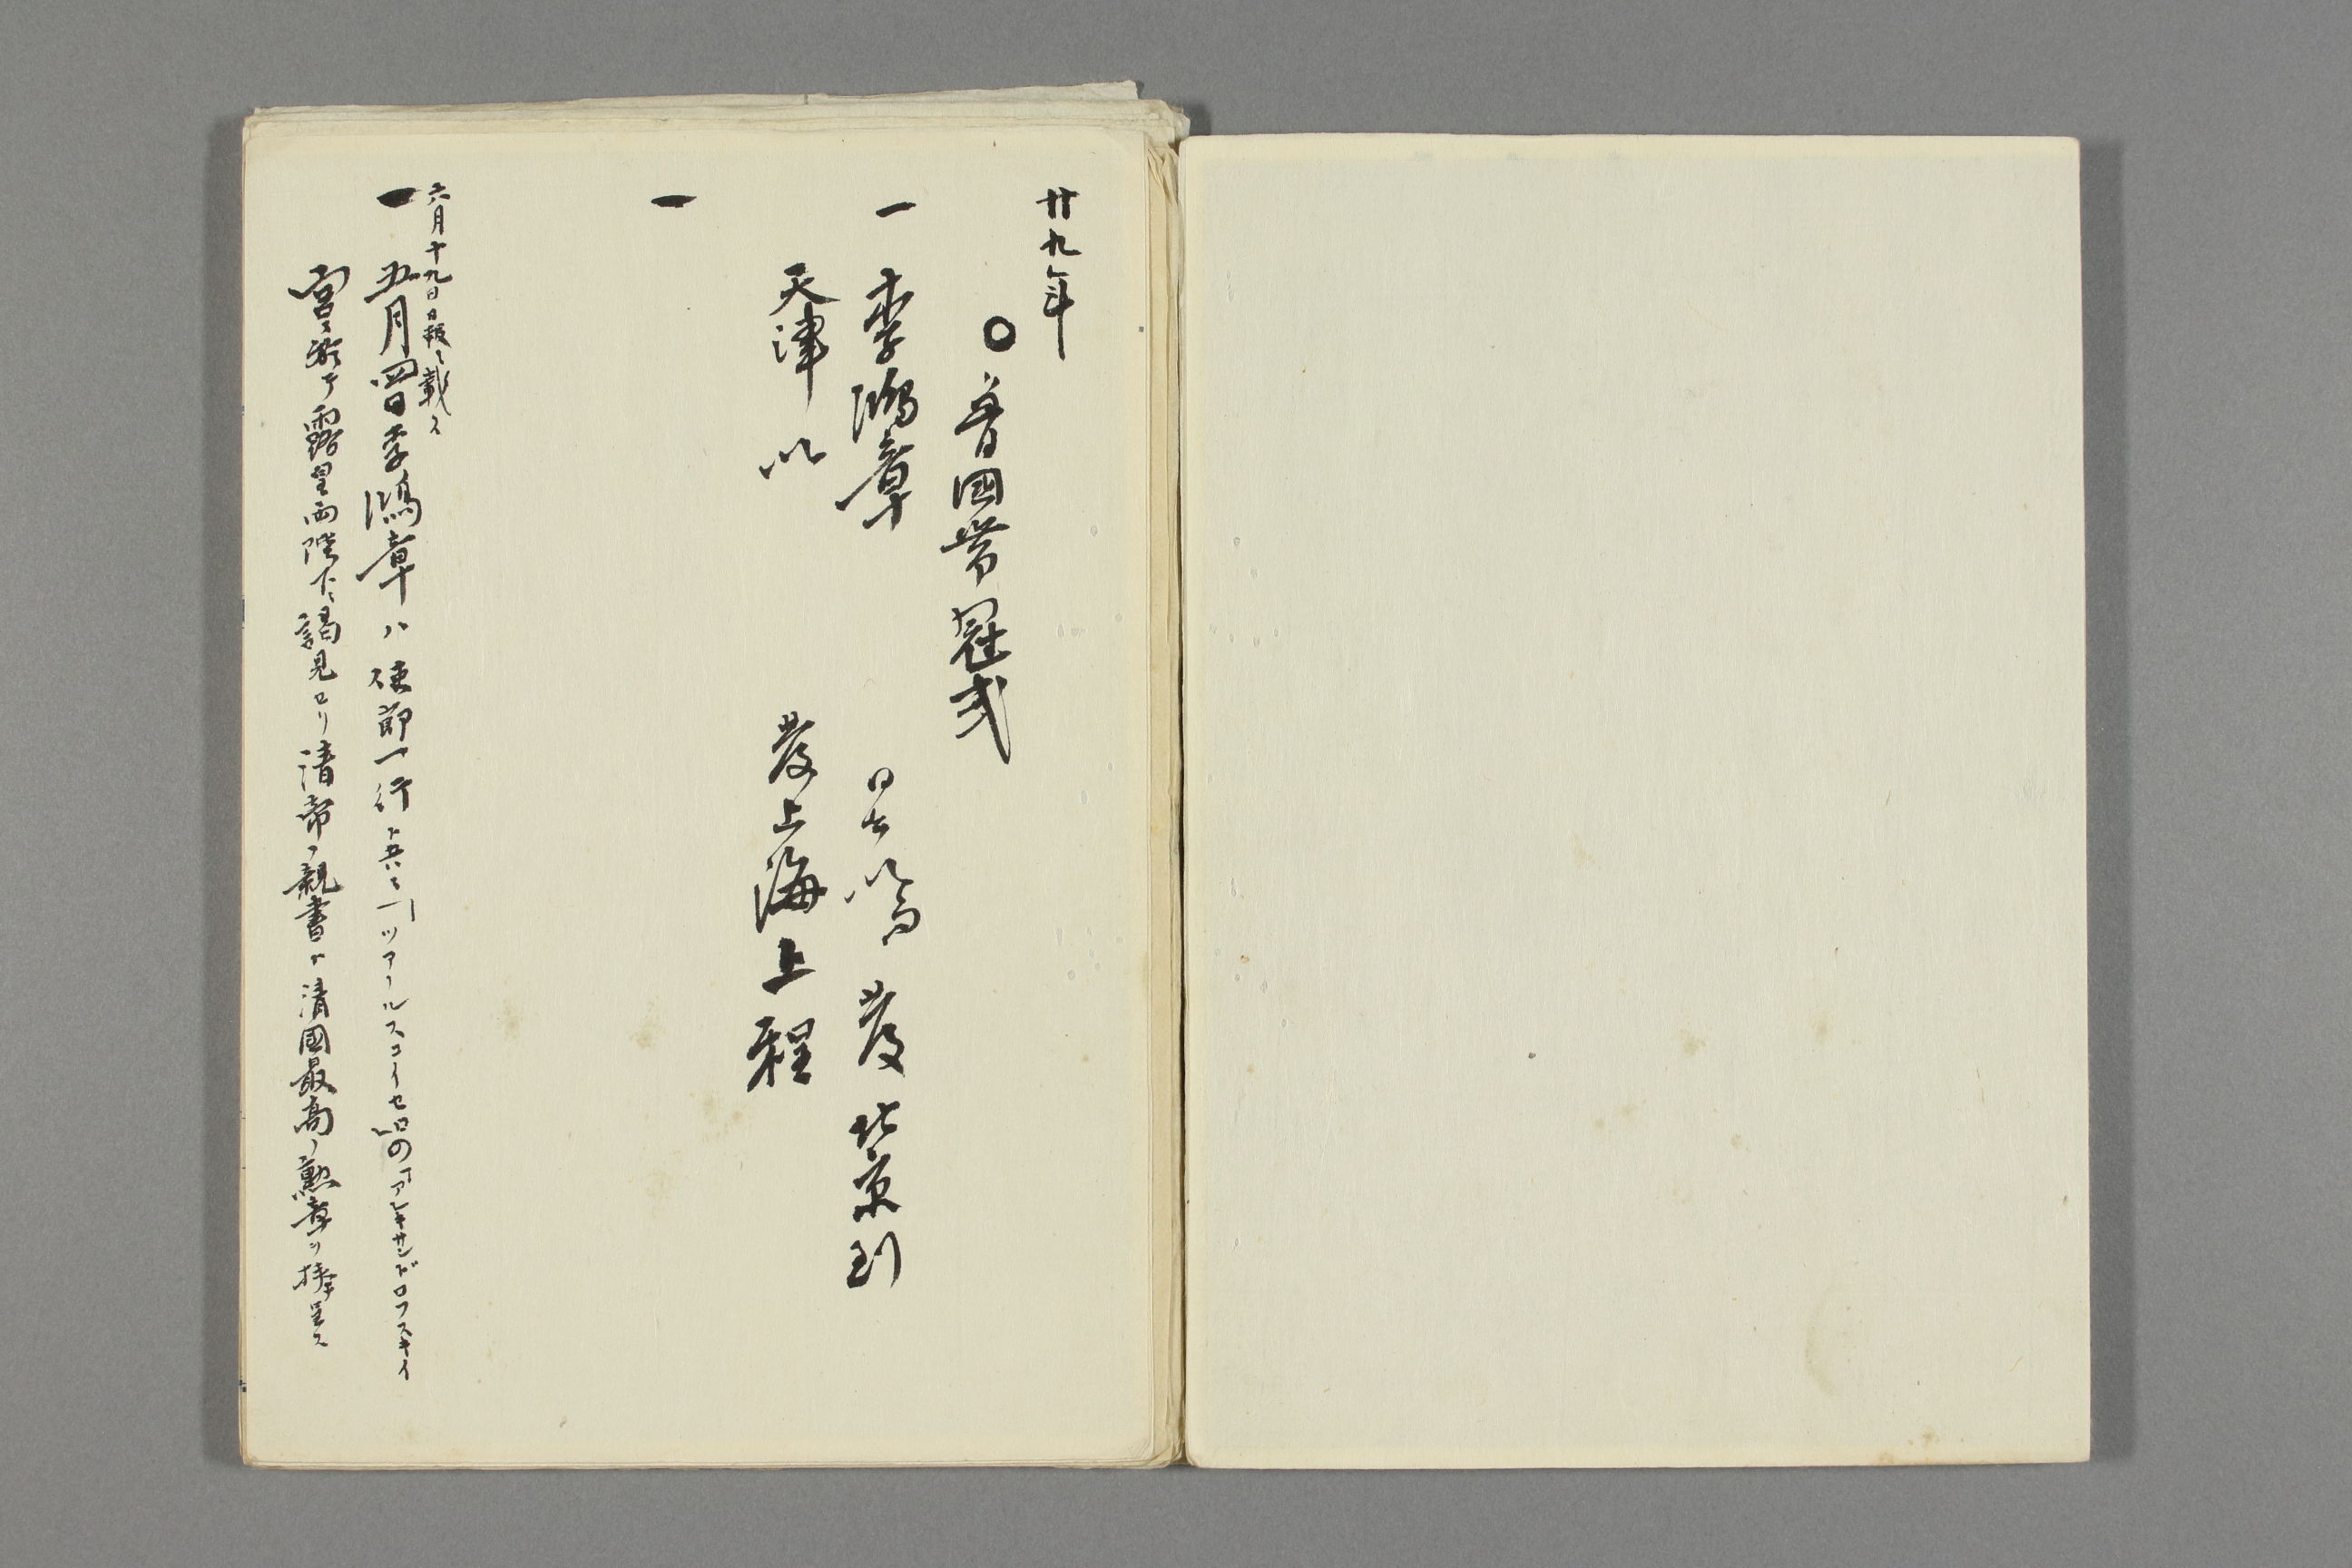 廿九年
〇 魯國帶冠式
一 李鴻章 日ヲ以 發北京到
天津 以 發上海上程
一
六月十九日日報ニ載ス
一 五月四日李鴻章ハ使節一行ト共ニ「ツアールスコイセロ」の「アレキサンドロフスキイ
宮ニ於テ露皇両陛下ニ謁見セリ清帝ノ親書ト清國最高ノ勲章ヲ捧呈ス